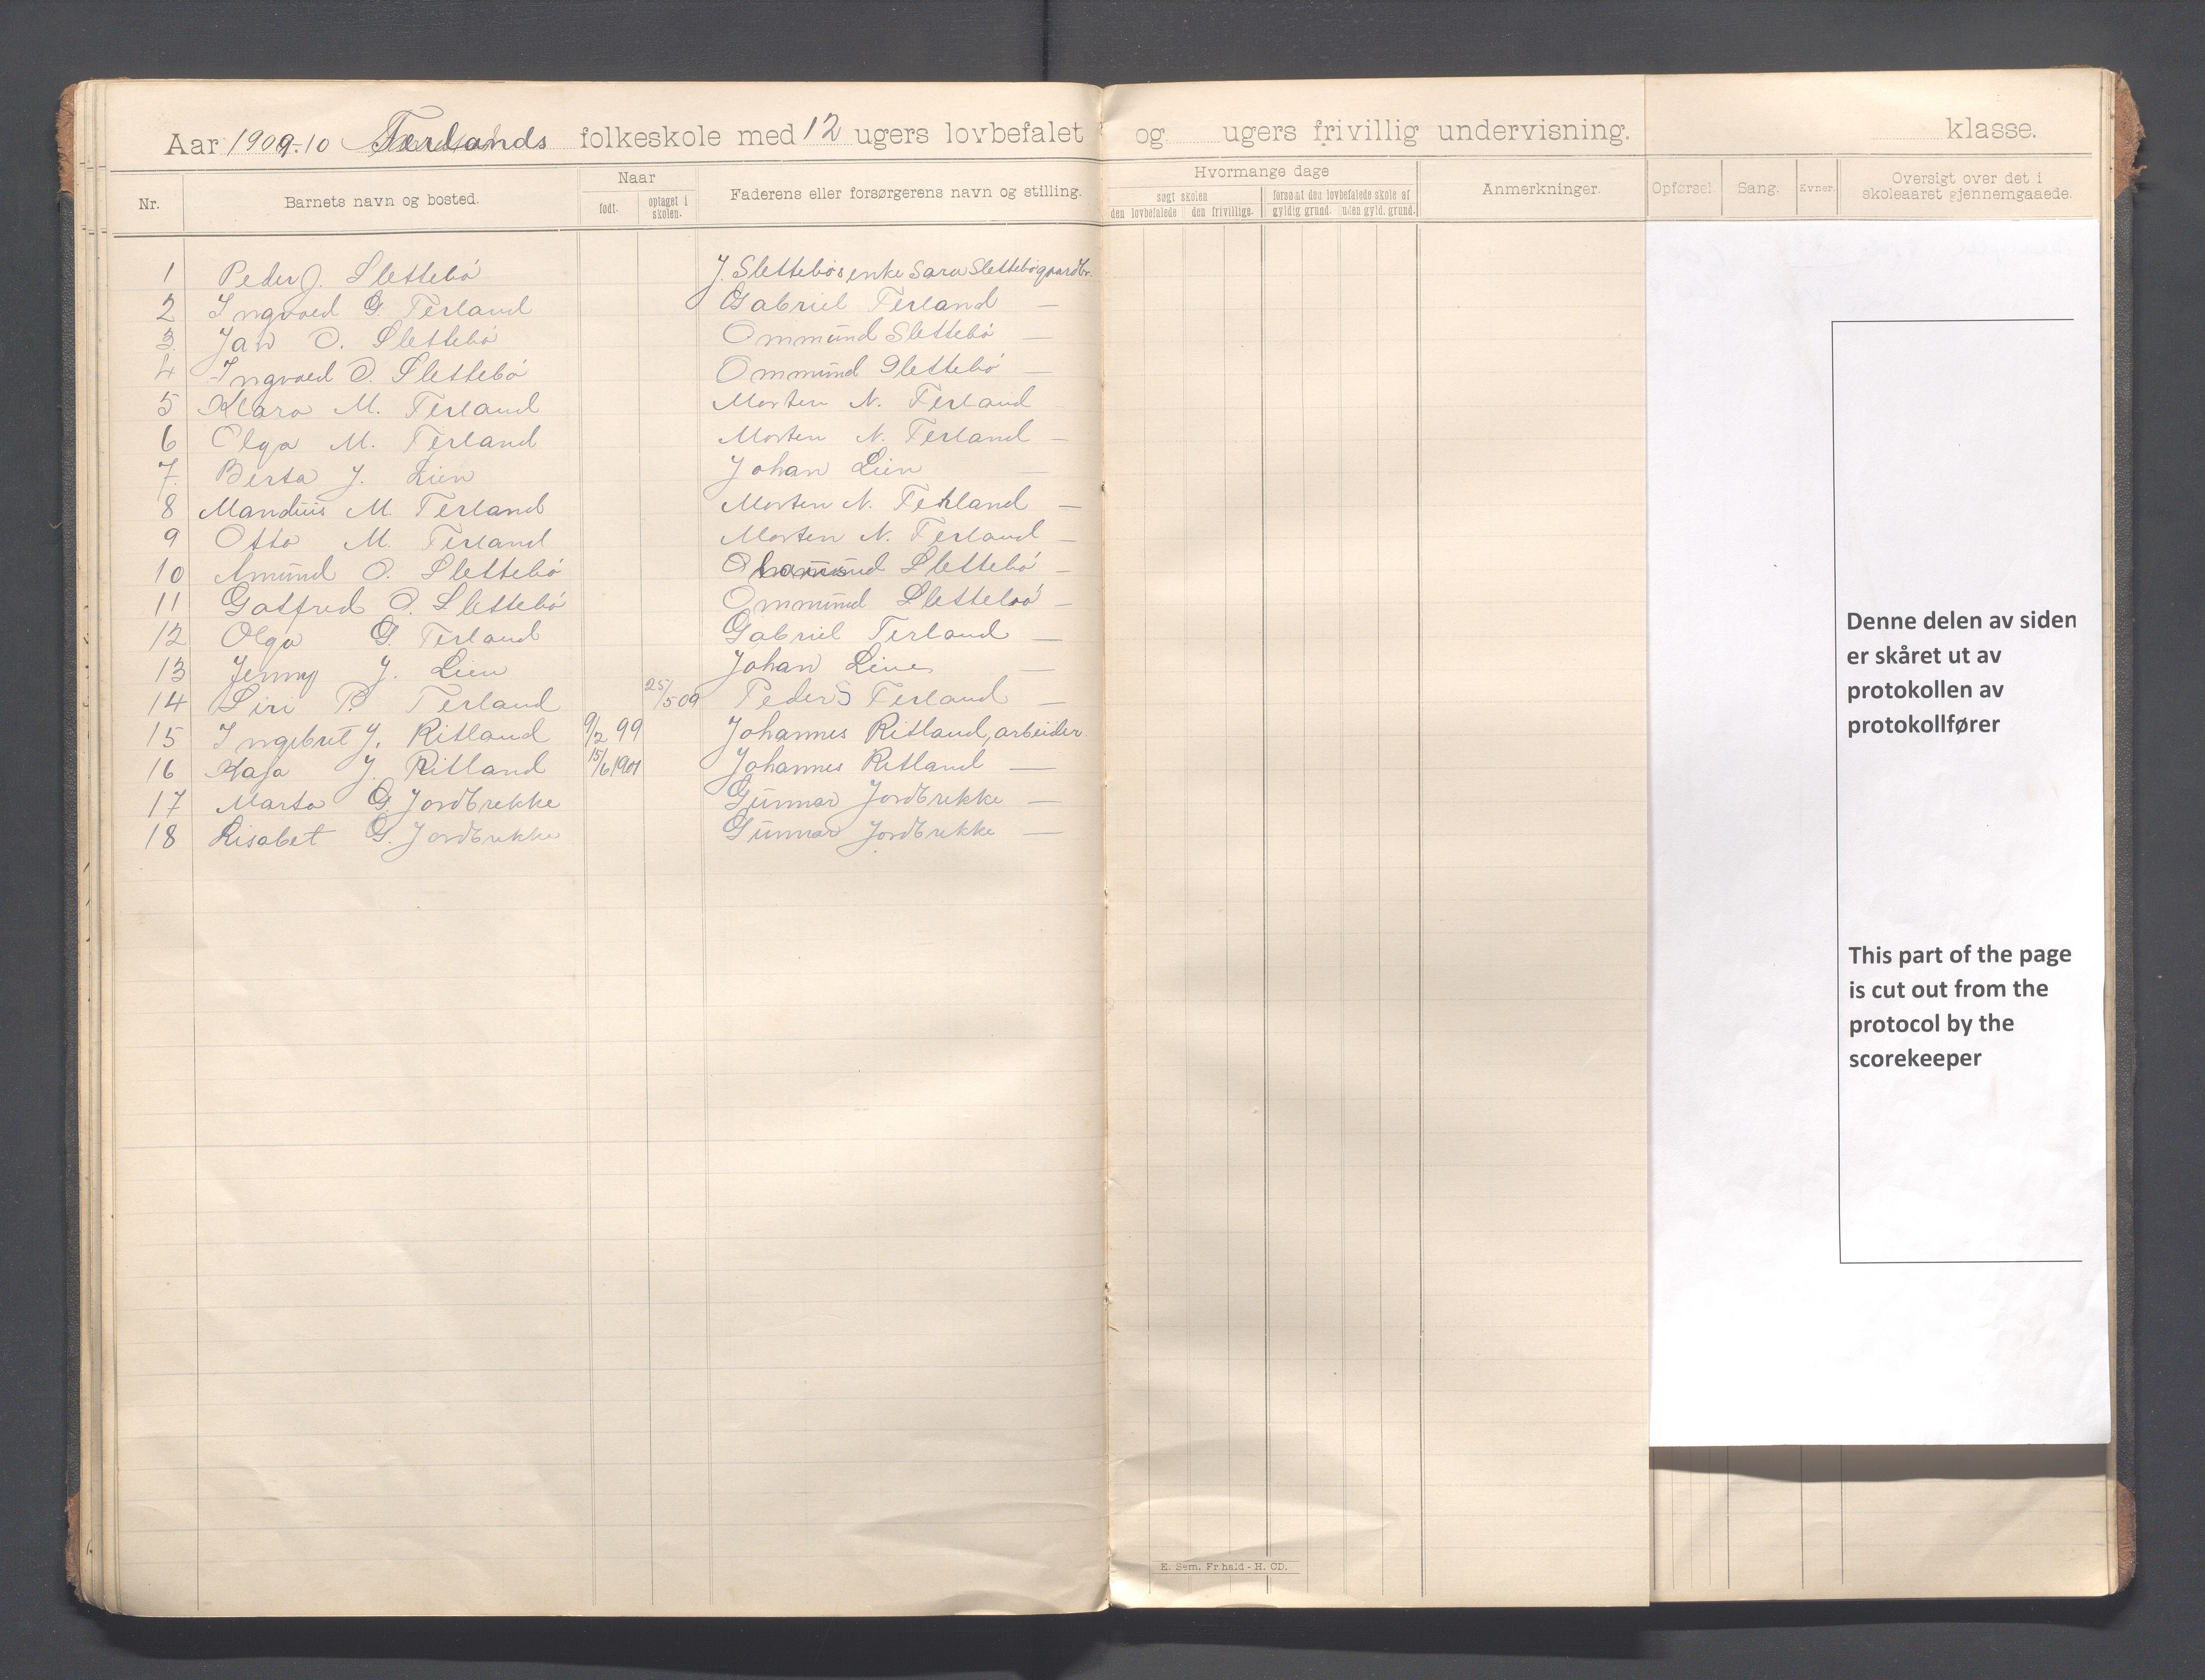 Aar 1909-10 Terlands folkeskole med 12 ugers lovbefalet og ugers frivillig undervisning. klasse.
Nr. Barnets navn og bosted. Naar født. optaget i skolen. Faderens eller forsørgerens navn og stilling. Hvormange dage søgt skolen den lovbefalede den frivillige. forsømt den lovbefalede skole af gyldig grund. uden gyld. grund. Anmerkninger. Opførsel. Sang. Evner. Oversigt over det i skoleaaret gjennemgaaede.
1 Peder J. Slettebö J. Slettebös enke Sara Slettebö gaardbr.
2 Ingvald G. Terland Gabriel Terland —
3 Jan O. Slettebö Ommund Slettebö —
4 Ingvald O. Slettebö Ommund Slettebö —
5 Klara M. Terland Morten N. Terland
6 Olga M. Terland Morten N. Terland —
7. Berta J. Lien Johan Lien —
8 Mandius M. Terland Morten N. Terland —
9 Otto M. Terland Morten N. Terland —
10 Amund O. Slettebö Slettebö —
11 Gotfred O. Slettebö Ommund Slettebö —
12 Olga G. Terland Gabriel Terland —
13 Jenny J. Lien Johan Line —
14 Siri P. Terland 25/5 09 Peder S Terland —
15 Ingebret J. Ritland 9/2 99 Johannes Ritland, arbeider
16 Kaja J. Ritland 15/6 1901 Johannes Ritland —
17 Marta G. Jordbrekke Gunnar Jordbrekke —
18 Lisabet G. Jordbrekke Gunnar Jordbrekke —
Denne delen av siden
er skåret ut av
protokollen av
protokollfører
This part of the page
is cut out from the
protocol by the
scorekeeper
E. Sem, Fr.hald - H. CD.